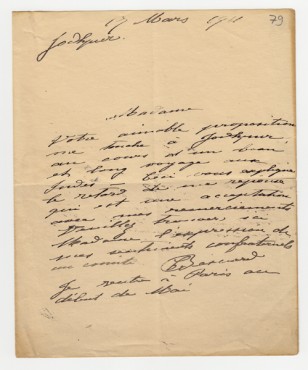 17 Mars 1911
79
Jodhpur.
Madame
Votre aimable proposition
me touche à Jodhpur,
au cours d'un beau
et long voyage aux
Indes. Ceci vous explique
le retard de ma réponse
qui est une acceptation
avec mes remerciements
Veuillez trouver ici
Madame l'expression de
mes sentiments confraternels
au comité
Je rentre à Paris au
début de Mai